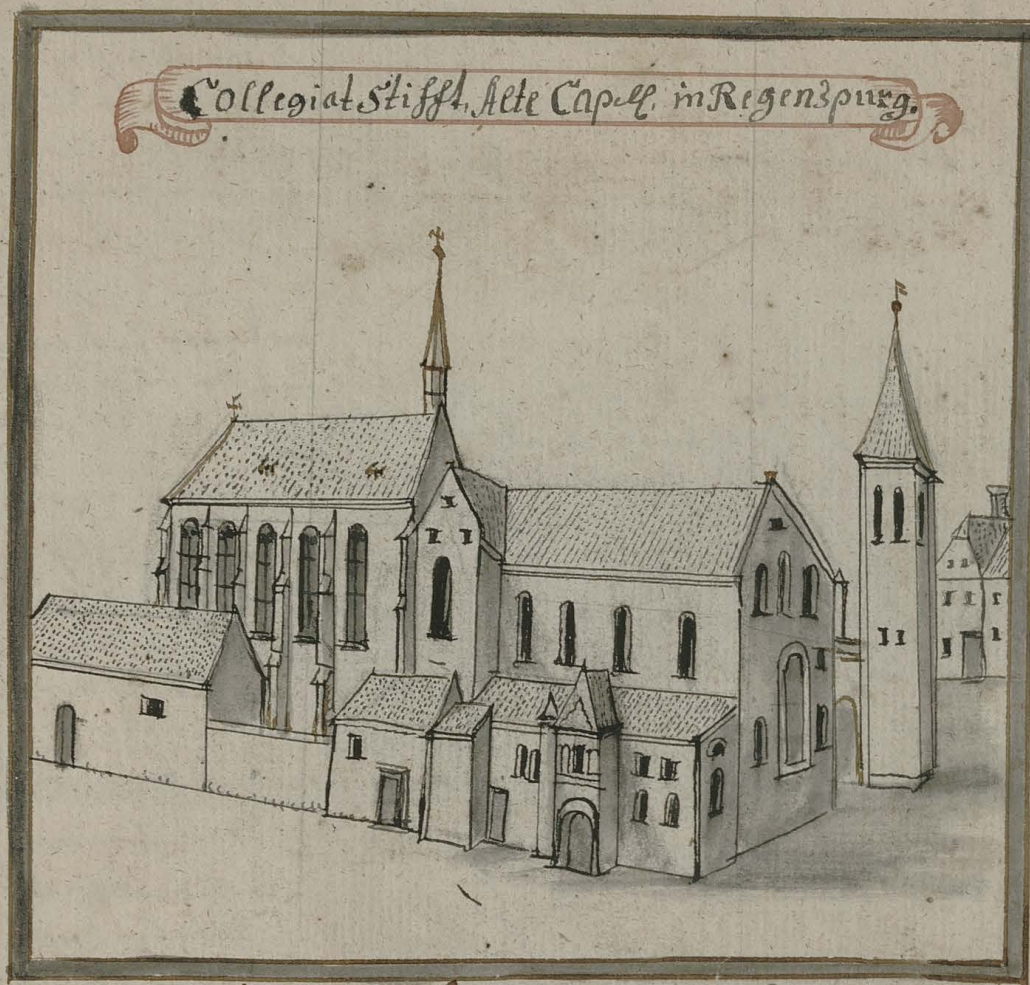 Collegiat Stifft, Alte Capell. in Regenspurg.